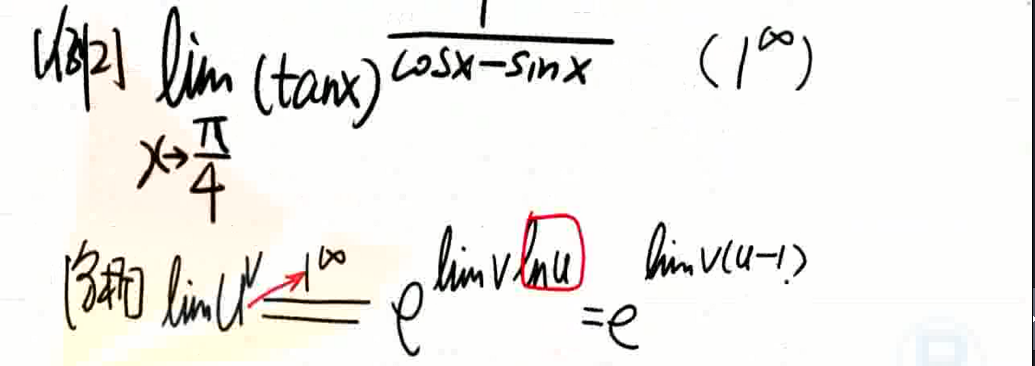 [例2] lim (tanx)^{\frac{1}{cosx-sinx}} (1^∞)
x→\frac{π}{4}
[分析] lim U^V \overset{1^∞}{=} e^{lim V ln u} = e^{lim V(u-1)}